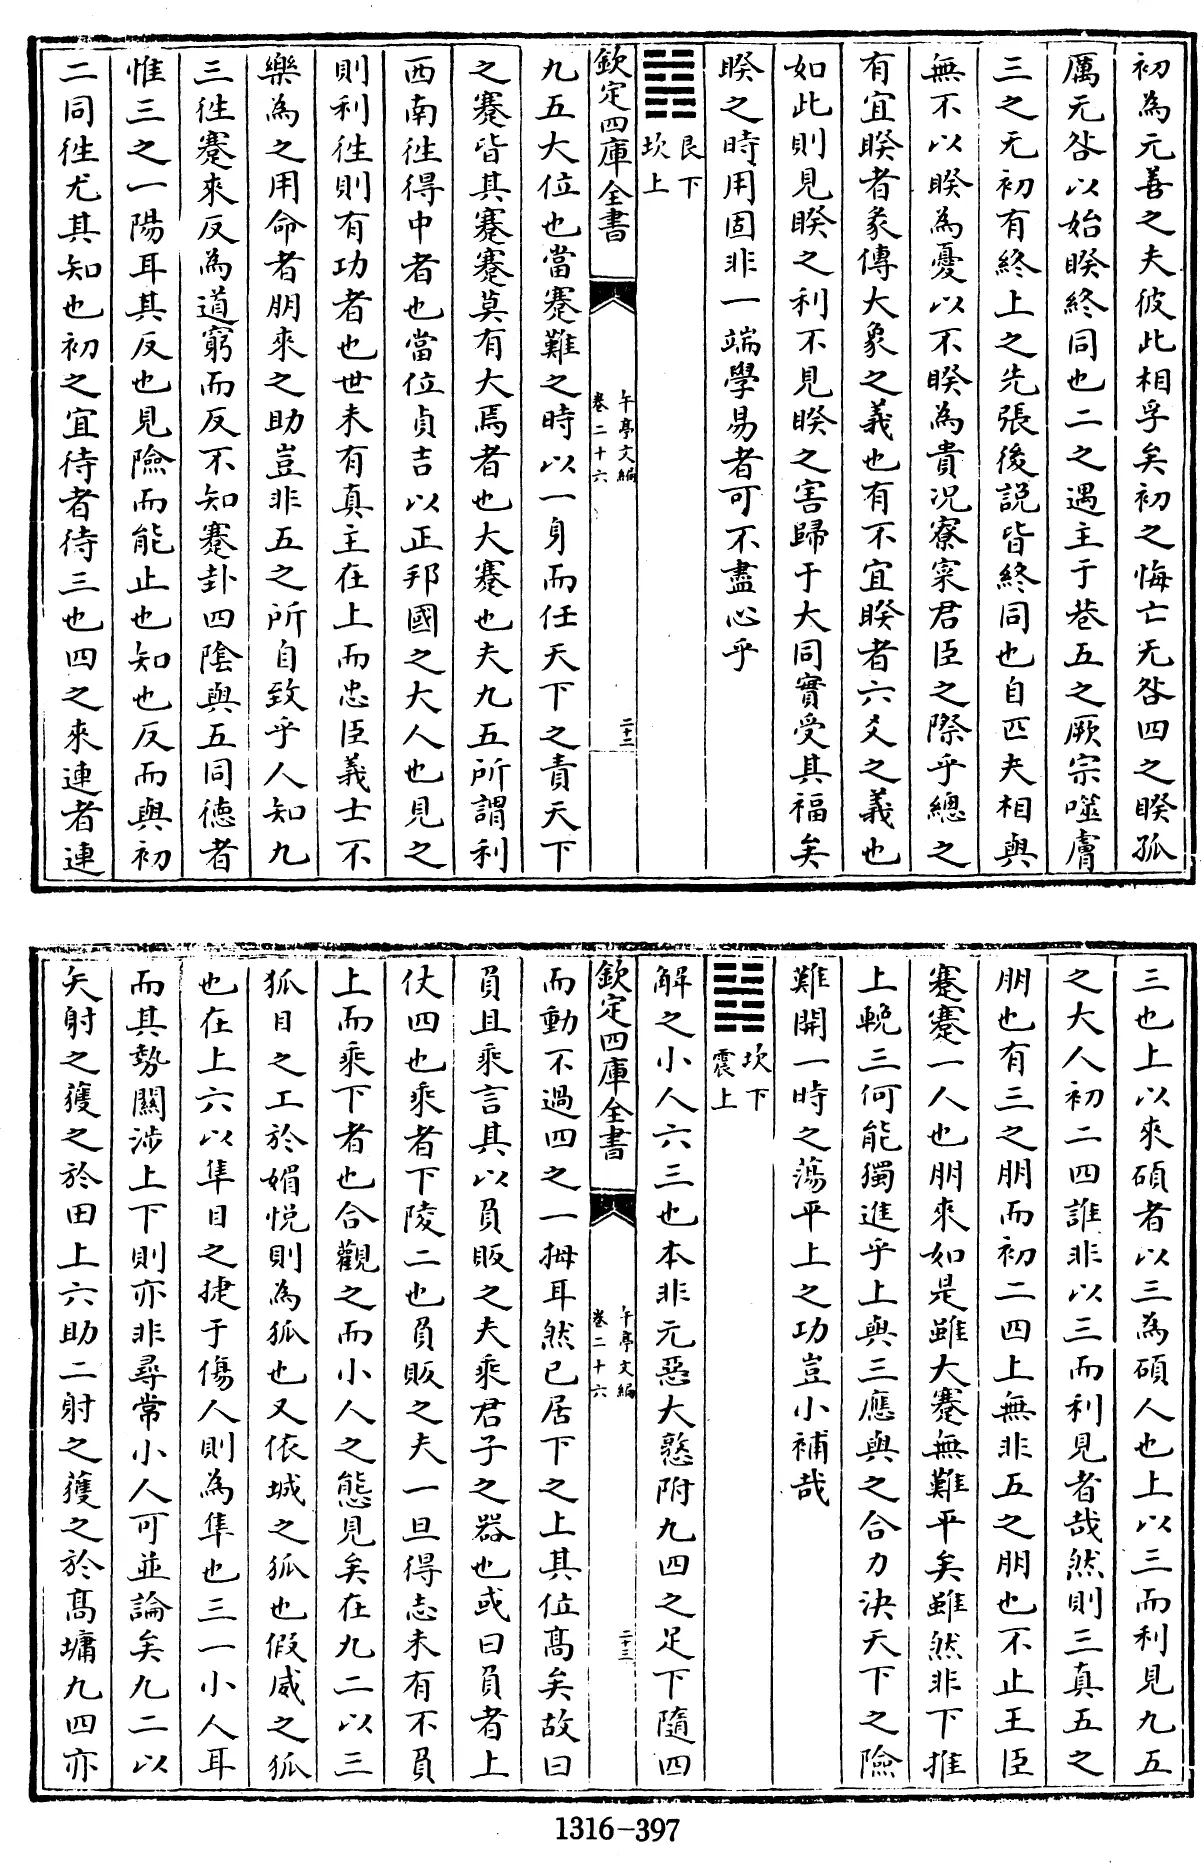 初為元善之夫彼此相孚矣初之悔亡无咎四之睽孤
厲无咎以始睽終同也二之遇主于巷五之厥宗噬膚
三之无初有終上之先張後説皆終同也自匹夫相與
無不以睽為憂以不睽為貴况寮寀君臣之際乎總之
有宜睽者彖傳大象之義也有不宜睽者六爻之義也
如此則見睽之利不見睽之害歸于大同實受其福矣
睽之時用固非一端學易者可不盡心乎
艮下
坎上
欽定四庫全書
午亭文編
卷二十六
二十二
九五大位也當蹇難之時以一身而任天下之責天下
之蹇皆其蹇蹇莫有大焉者也大蹇也夫九五所謂利
西南徃得中者也當位貞吉以正邦國之大人也見之
則利徃則有功者也世未有真主在上而忠臣義士不
樂為之用命者朋來之助豈非五之所自致乎人知九
三徃蹇來反為道窮而反不知蹇卦四陰與五同徳者
惟三之一陽耳其反也見險而能止也知也反而與初
二同徃尤其知也初之宜待者待三也四之來連者連
三也上以來碩者以三為碩人也上以三而利見九五
之大人初二四誰非以三而利見者哉然則三真五之
朋也有三之朋而初二四上無非五之朋也不止王臣
蹇蹇一人也朋來如是雖大蹇無難平矣雖然非下推
上輓三何能獨進乎上與三應與之合力決天下之險
難開一時之蕩平上之功豈小補哉
坎下
震上
解之小人六三也本非元惡大憝附九四之足下隨四
欽定四庫全書
午亭文編
卷二十六
二十三
而動不過四之一拇耳然已居下之上其位髙矣故曰
負且乘言其以負販之夫乘君子之器也或曰負者上
仗四也乘者下陵二也負販之夫一旦得志未有不負
上而乘下者也合觀之而小人之態見矣在九二以三
狐目之工於媚悦則為狐也又依城之狐也假威之狐
也在上六以隼目之捷于傷人則為隼也三一小人耳
而其勢關涉上下則亦非尋常小人可並論矣九二以
矢射之獲之於田上六助二射之獲之於髙墉九四亦
1316-397